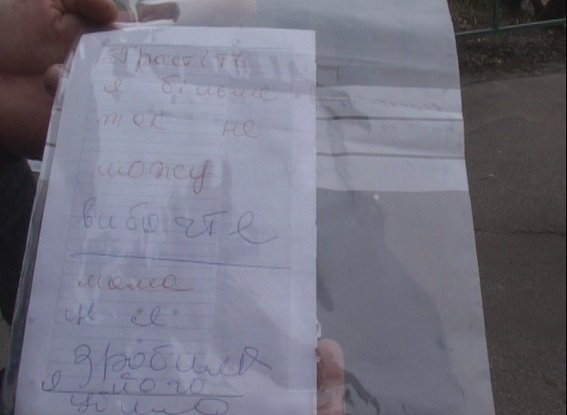 Простіть
я більше
так не
можу
вибочте
мама
не я
зробила
я його